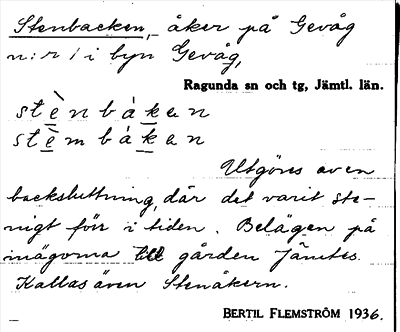 Stenbacken, åker på Gevåg
n:r 1 i byn Gevåg,
Ragunda sn och tg, Jämtl. län.
stè̱nbáḵen
stè̱mbáḵen
Utgöres av en
backsluttning, där det varit ste-
nigt förr i tiden. Belägen på
inägorna till gården Jämtes.
Kallas även Stenåkern.
BERTIL FLEMSTRÖM 1936.